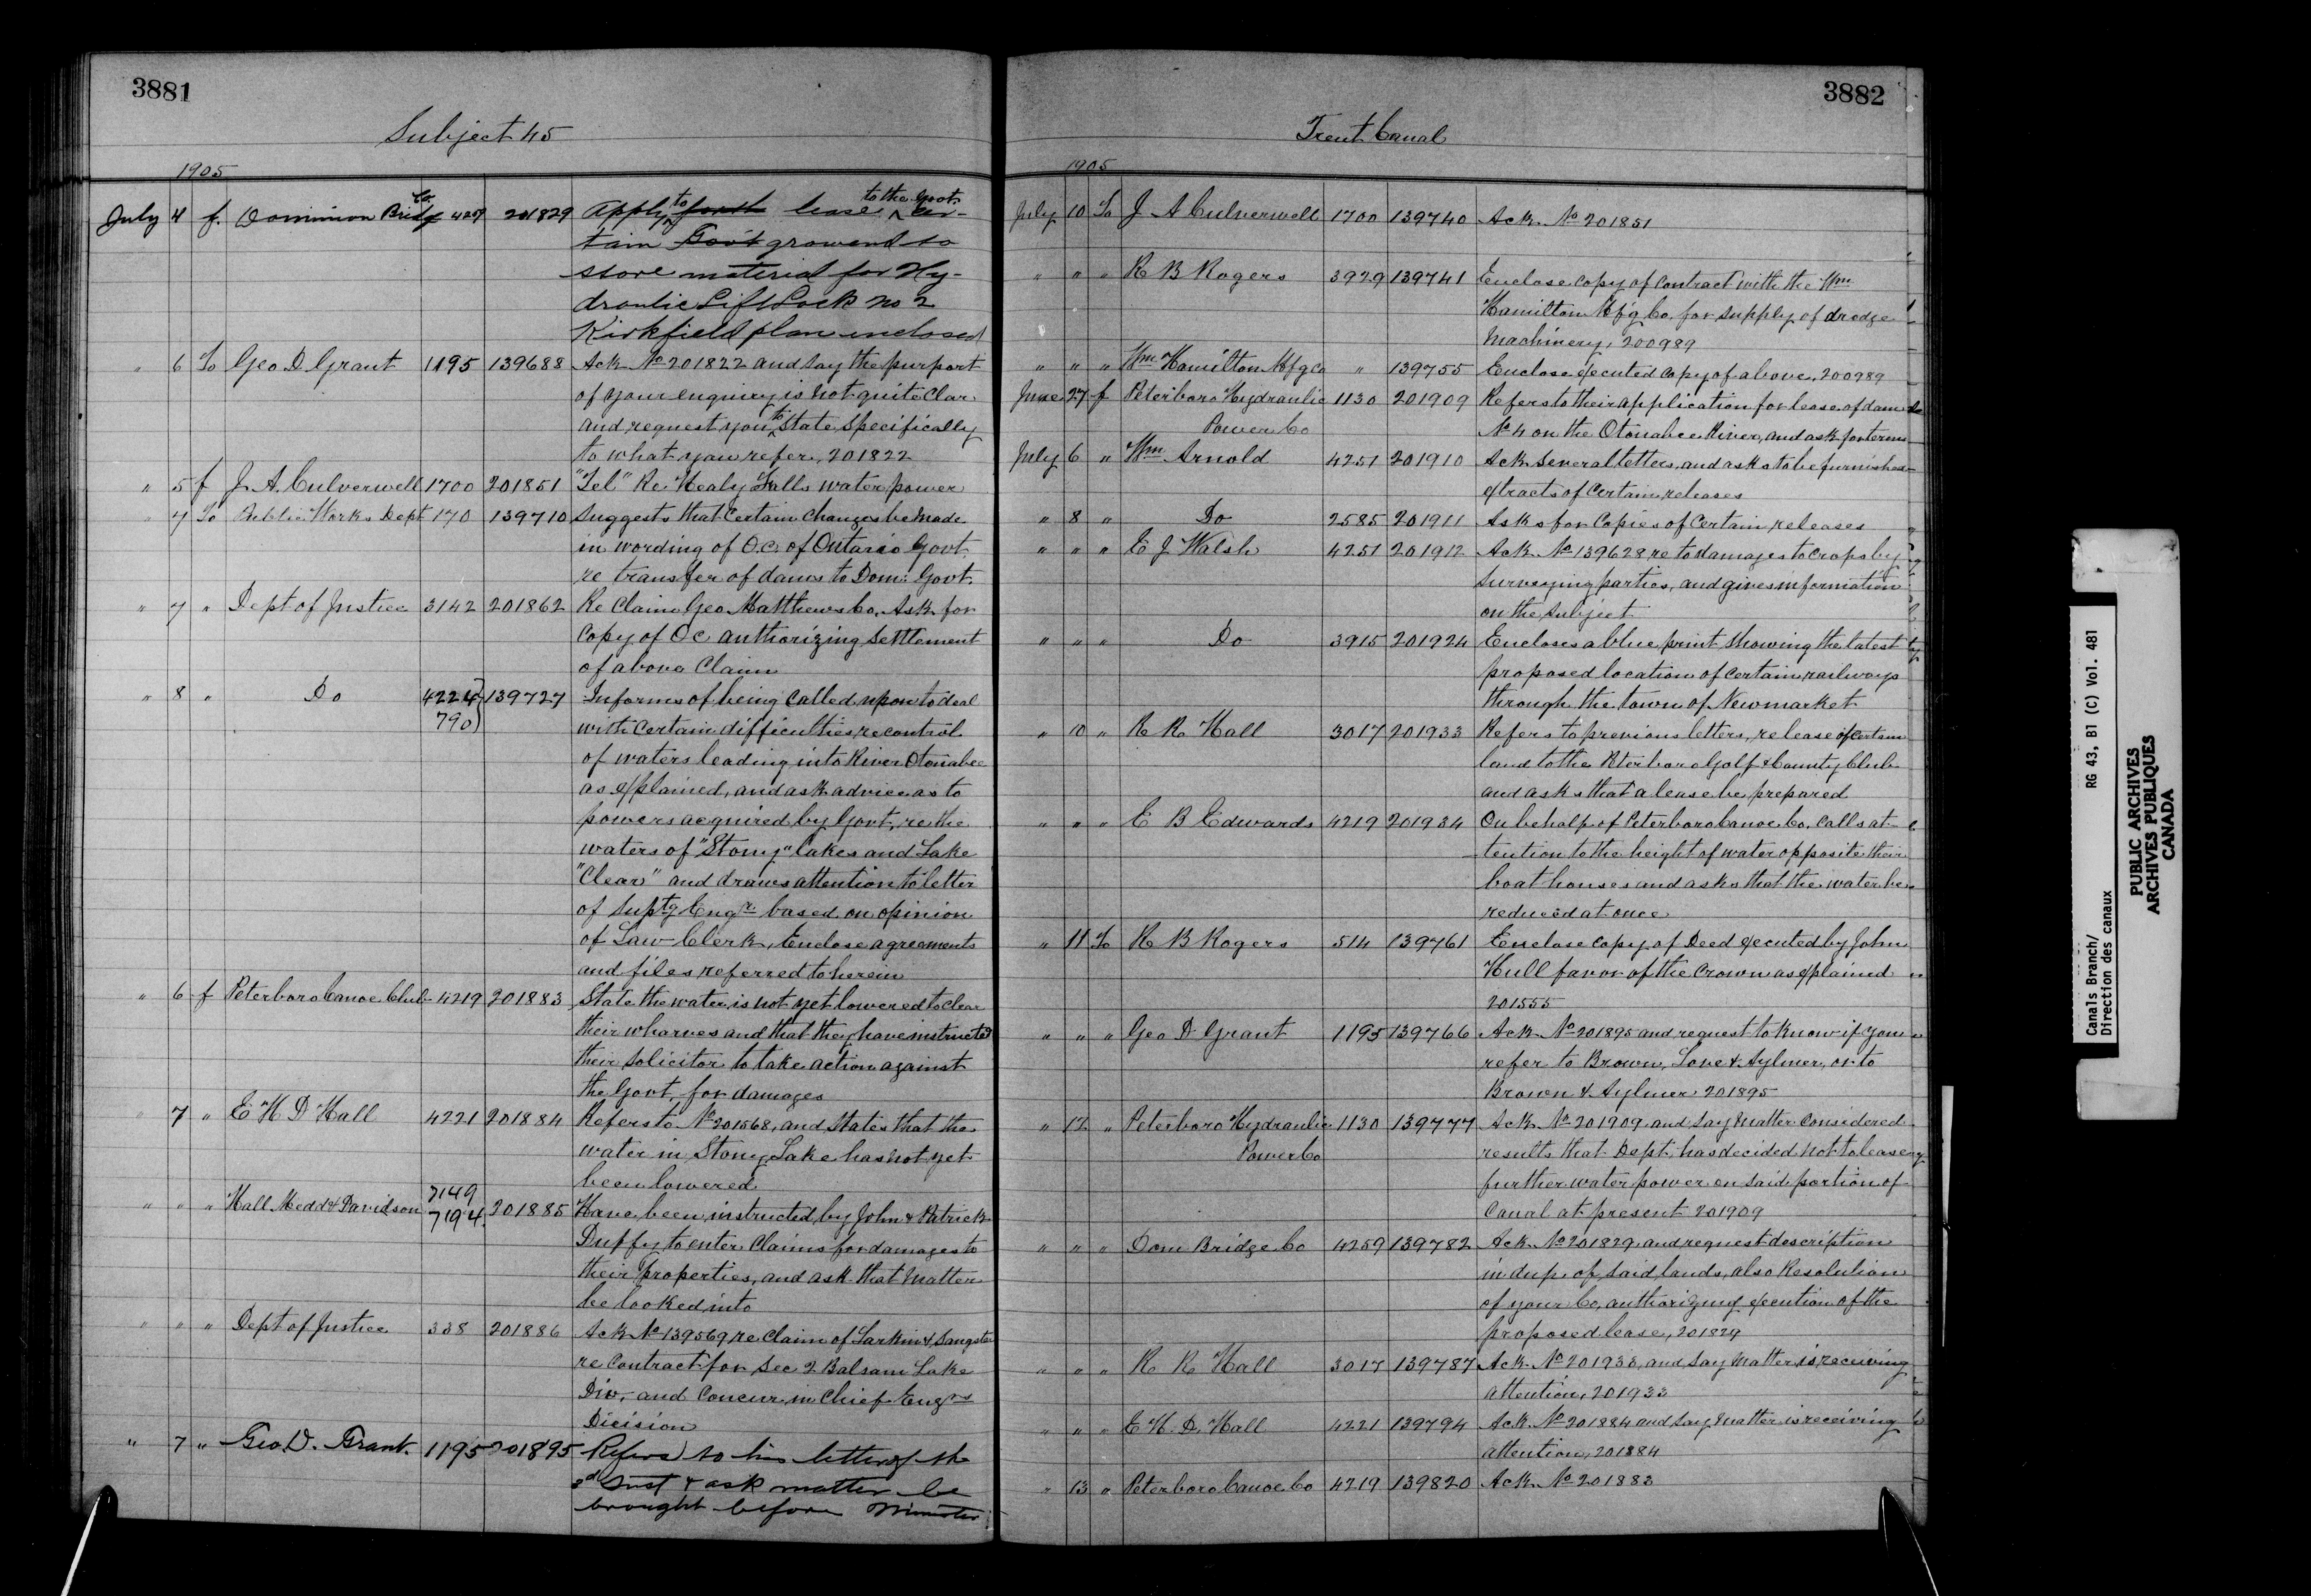 3881
Subject 45
1905
July 4 f. Dominion Bridge Co 427 201829 Apply to lease to the Govt. cer-
tain Gov't ground to
store material for Hy-
draulic Lift Lock No 2
Kirkfield plan enclosed
" 6 To Geo D Grant 1195 139688 Ack No 201822 and say the purport
of your enquiry is not quite clear
and request you to state specifically
to what you refer, 201822
" 5 f J. A. Culverwell 1700 201851 "Tel" Re Healy Falls water power
" 7 To Public Works Dept 170 139710 Suggests that certain changes be made
in wording of O.C. of Ontario Govt.
re transfer of dams to Dom: Govt.
" 7 " Dept of Justice 3142 201862 Re Claim Geo. Matthews Co. Ask for
copy of O C authorizing settlement
of above Claim
" 8 " Do 4224 139727 Informs of being called upon to deal
790 with certain difficulties, re control
of waters leading into River Otonabee
as explained, and ask advice as to
powers acquired by Govt. re the
waters of "Stony" lakes and Lake
"Clear" and draws attention to letter
of Suptg Engr. based on opinion
of Law Clerk, Enclose agreements
and files referred to herein
" 6 f Peterboro Canoe Club 4219 201883 State the water is not yet lowered to clear
their wharves and that they have instructed
their solicitor to take action against
the Govt. for damages
" 7 " E H D Hall 4221 201884 Refers to No 201568, and states that the
water in Stony Lake has not yet
been lowered
" " " Hall Medd & Davidson 7149 7194 201885 Have been instructed by John & Patrick
Duffy to enter claims for damages to
their properties, and ask that matter
be looked into
" " " Dept of Justice 338 201886 Ack No 139569 re Claim of Larkin & Sangster
re contract for Sec 2 Balsam Lake
Div, and concur in Chief Engrs
Dicision
" 7 " Geo. D. Grant. 1195 201895 Refers to his letter of the
3d Inst & ask matter be
brought before Minister
3882
Trent Canal
1905
July 10 To J A Culverwell 1700 139740 Ack No 201851
" " " R B Rogers 3929 139741 Enclose copy of contract with the Wm
Hamilton Mfg Co. for supply of dredge
Machinery, 200989
" " " Wm Hamilton Mfg Co " 139755 Enclose executed copy of above, 200989
June 27 f Peterboro Hydraulic 1130 201909 Refers to their application for lease of dam
Power Co No 4 on the Otonabee River, and ask for terms
July 6 " Wm Arnold 4251 201910 Ack several letters, and asks to be furnished
extracts of certain releases
" 8 " Do 2585 201911 Asks for copies of certain releases
" " " E J Walsh 4251 201912 Ack No 139628 re to damages to crops by
surveying parties, and gives information
on the subject
" " " Do 3915 201924 Encloses a blue print showing the latest
proposed location of certain railways
through the town of Newmarket
" 10 " R R Hall 3017 201933 Refers to previous letters, release of certain
land to the Peterboro Golf & County Club
and asks that a lease be prepared
" " " E B Edwards 4219 201934 On behalf of Peterboro Canoe Co. calls at-
tention to the height of water opposite their
boat houses and asks that the water be
reduced at once
" 11 To R B Rogers 514 139761 Enclose copy of Deed executed by John
Hull favor of the Crown as explained
201555
" " " Geo D Grant 1195 139766 Ack No 201895 and request to know if you
refer to Brown, Love & Aylmer, or to
Brown & Aylmer 201895
" 12 " Peterboro Hydraulic 1130 139777 Ack No 201909 and say matter considered
Power Co results that Dept. has decided not to lease
further water power on said portion of
Canal at present 201909
" " " Dom Bridge Co 4259 139782 Ack No 201829 and request description
in dup. of said lands, also Resolution
of your Co, authorizing execution of the
proposed lease, 201829
" " " R R Hall 3017 139787 Ack No 201933, and say matter is receiving
attention, 201933
" " " E H. D. Hall 4221 139794 Ack No 201884 and say matter is receiving
attention, 201884
" 13 " Peterboro Canoe Co 4219 139820 Ack No 201883
Canals Branch/ RG 43, B1 (C) Vol. 481
Direction des canaux
PUBLIC ARCHIVES
ARCHIVES PUBLIQUES
CANADA